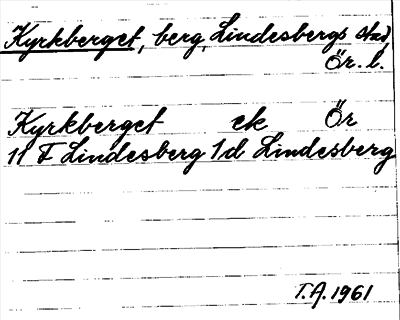 Kyrkberget, berg, Lindesbergs stad
Ör. l.
Kyrkberget ek Ör
11 F Lindesberg 1d Lindesberg
T.A. 1961